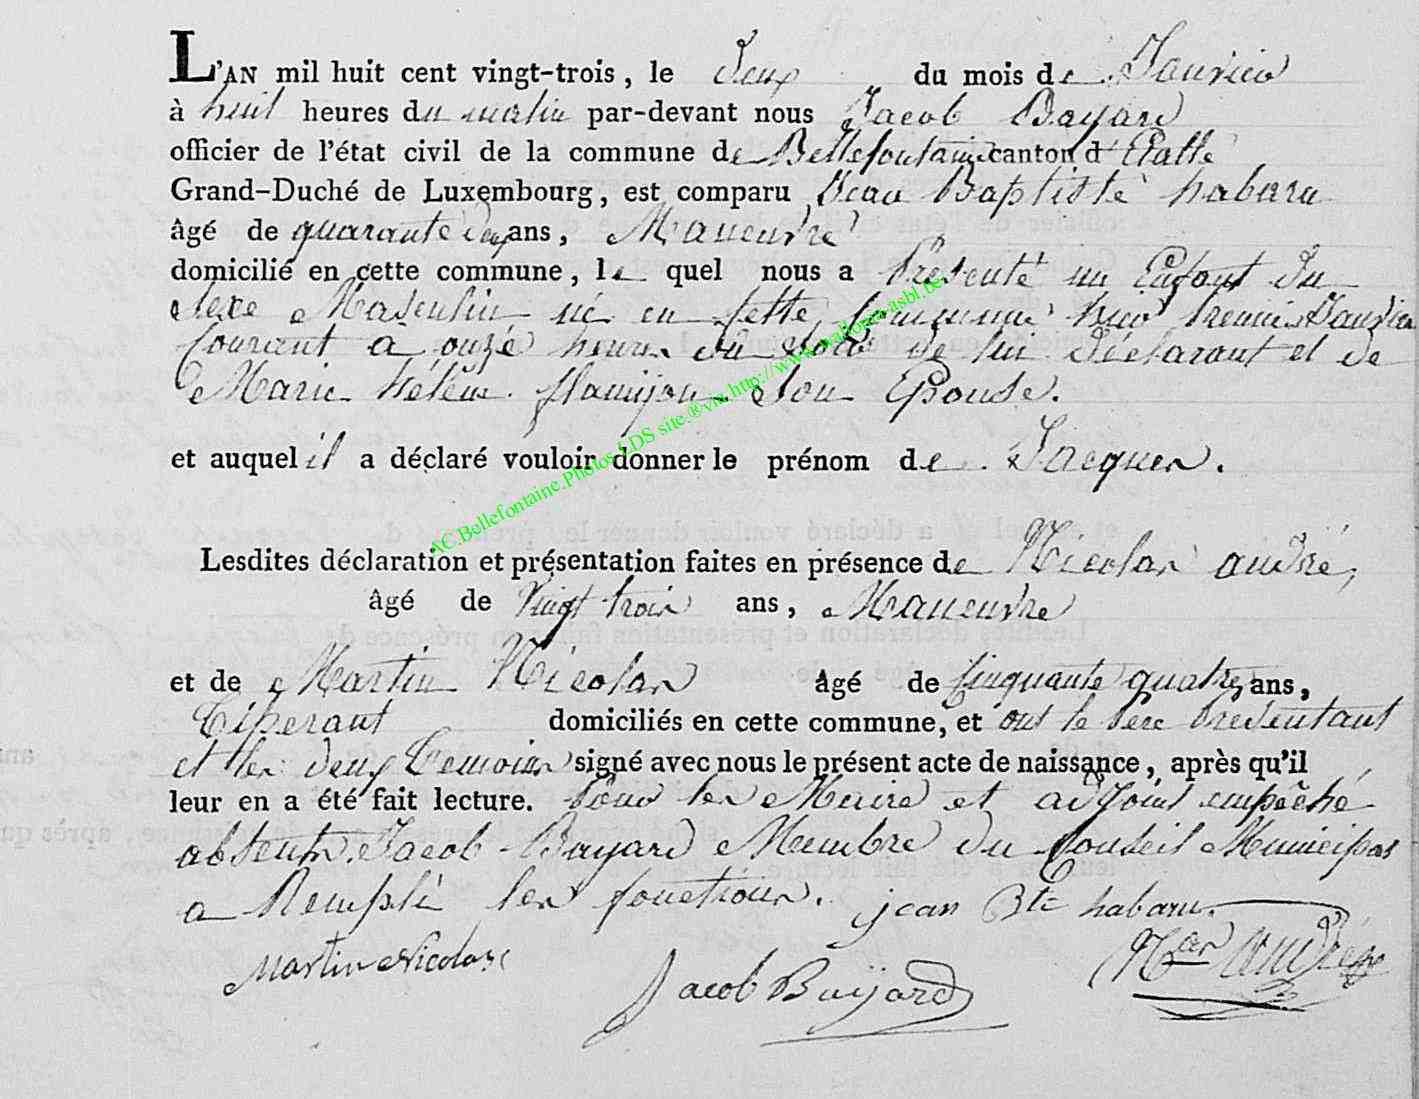 L'AN mil huit cent vingt-trois, le Deux du mois de Janvier
à huit heures du matin par-devant nous Jacob Bayard
officier de l'état civil de la commune de Bellefontaine canton d'Etalle
Grand-Duché de Luxembourg, est comparu Jean Baptiste habaru
âgé de quarante deux ans, Maneuvre
domicilié en cette commune, le quel nous a Presenté un Enfant du
Sexe Masculin né en Cette Commune hier premier Janvier
Courant à onze heures du soir de lui déclarant et de
Marie hélène flamijon Son Epouse.
et auquel il a déclaré vouloir donner le prénom de Jacques.
AC.Bellefontaine.Photos LDS site.®via http://www.wallonia.asbl.be
Lesdites déclaration et présentation faites en présence de Nicolas andré,
âgé de Vingt trois ans, Maneuvre
et de Martin Nicolas âgé de Cinquante quatre ans,
Tisserant domiciliés en cette commune, et ont le Pere Presentant
et les deux Temoins signé avec nous le présent acte de naissance, après qu'il
leur en a été fait lecture. Pour les Maire et adjoint empêché
absents Jacob Bayard Membre du Conseil Municipal
a Remplis les fonctions. jean Bte habaru
Martin Nicolas
Jacob Bayard
Nas André